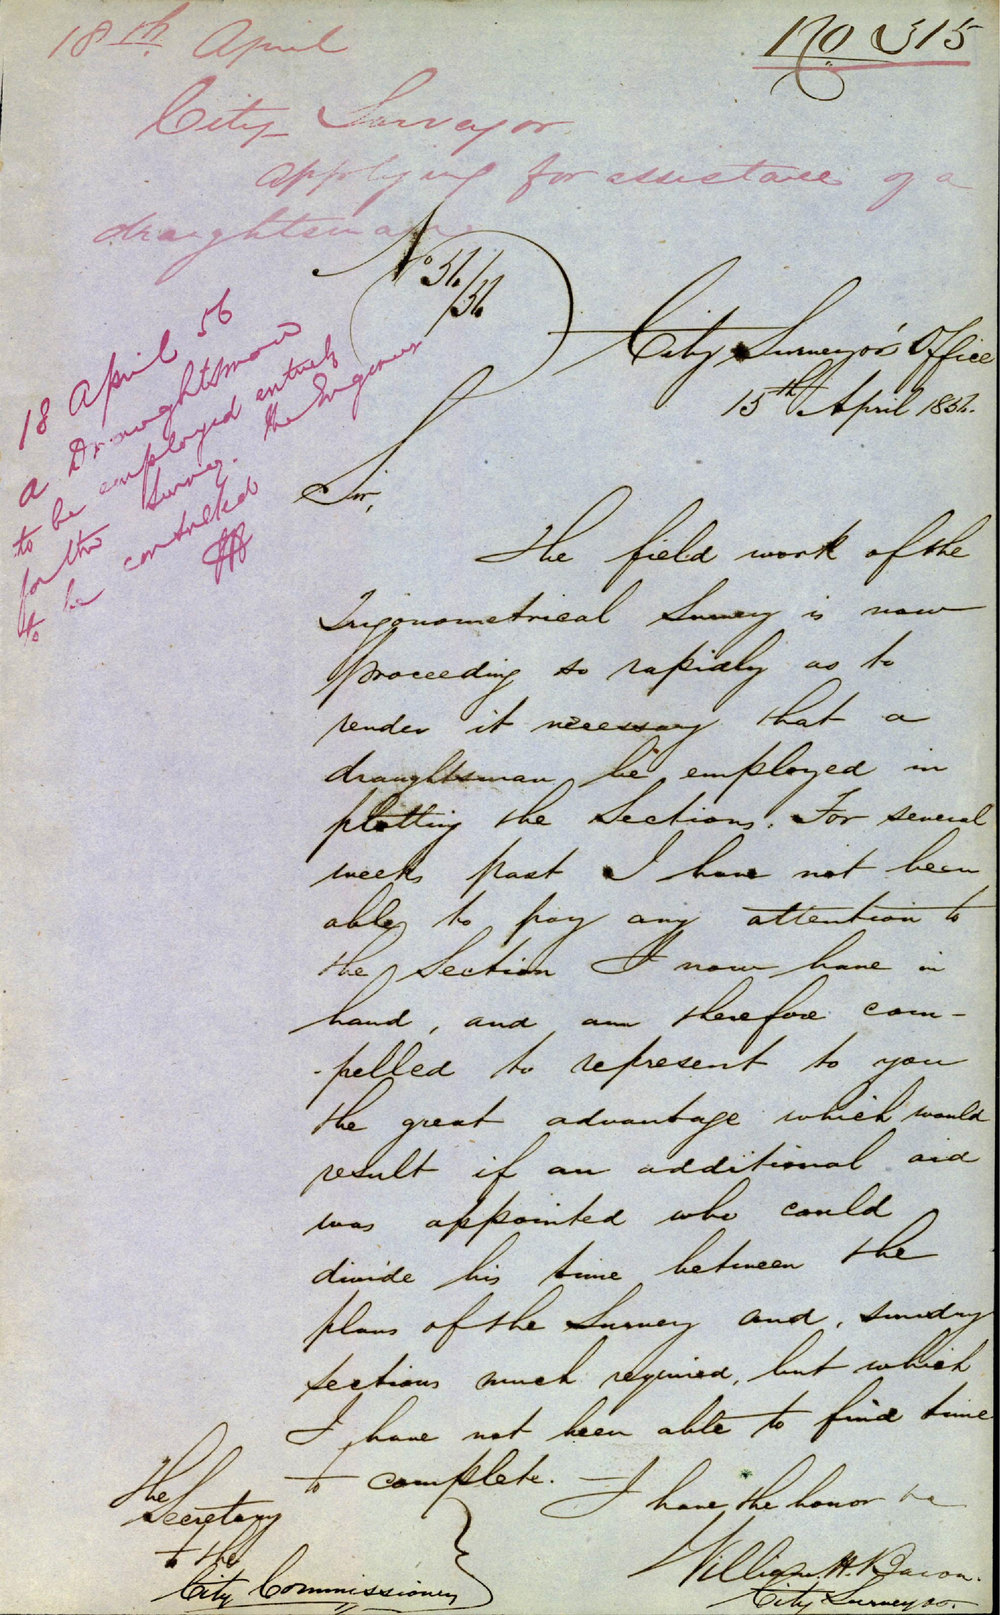 18th April
No 315
City Surveyor
applying for assistance of a
draughtsman
No 56/56
City Surveyor's Office
15th April 1856.
18 April 56
a Draughtsman
to be employed entirely
for the Survey. the Engineer
to be controlled
Sir,
The field work of the
Trigonometrical Survey is now
proceeding so rapidly as to
render it necessary that a
draughtsman be employed in
plotting the Sections. For several
weeks past I have not been
able to pay any attention to
the Section I now have in
hand, and am therefore com-
-pelled to represent to you
the great advantage which would
result if an additional aid
was appointed who could
divide his time between the
plans of the Survey and, sundry
sections much required, but which
I have not been able to find time
to complete. I have the honor
William H.
City Surveyor.
The
Secretary
to the
City Commissioners